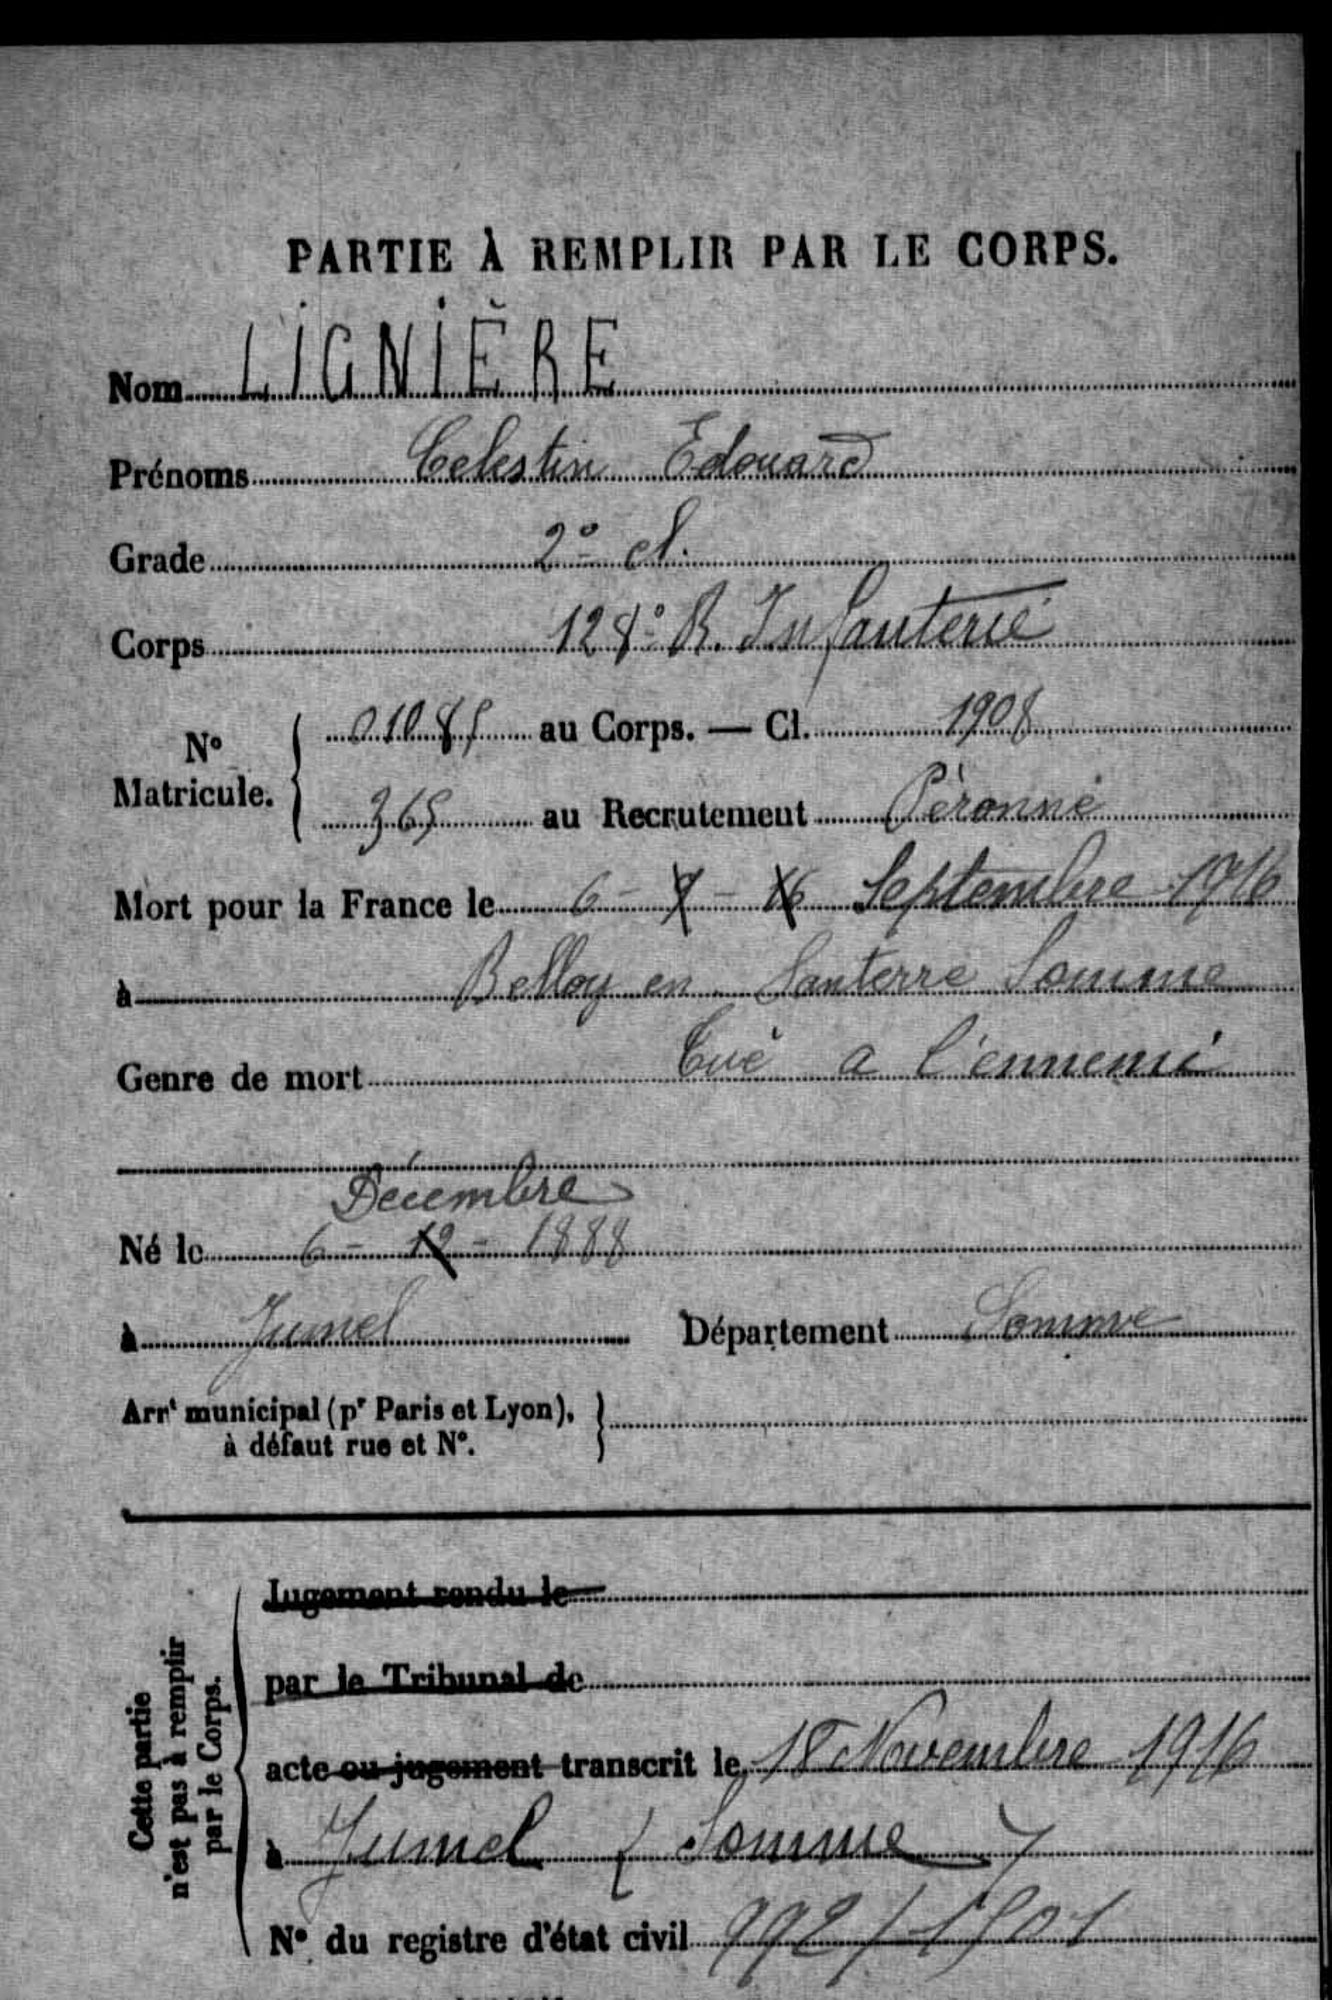 PARTIE À REMPLIR PAR LE CORPS.
Nom LIGNIÈRE
Prénoms Celestin Edouard
Grade 2e cl.
Corps 128e R. Infanterie
N° Matricule. 01085 au Corps. — Cl. 1908
365 au Recrutement Péronne
Mort pour la France le 6 - 9 - 16 Septembre 1916
à Belloy en Santerre Somme
Genre de mort Tué a l'ennemi
Décembre
Né le 6 - 12 - 1888
à Jumel Département Somme
Arrt municipal (pr Paris et Lyon),
à défaut rue et N°.
Cette partie
n'est pas à remplir
par le Corps.
Jugement rendu le
par le Tribunal de
acte ou jugement transcrit le 18 Novembre 1916
à Jumel (Somme)
N° du registre d'état civil